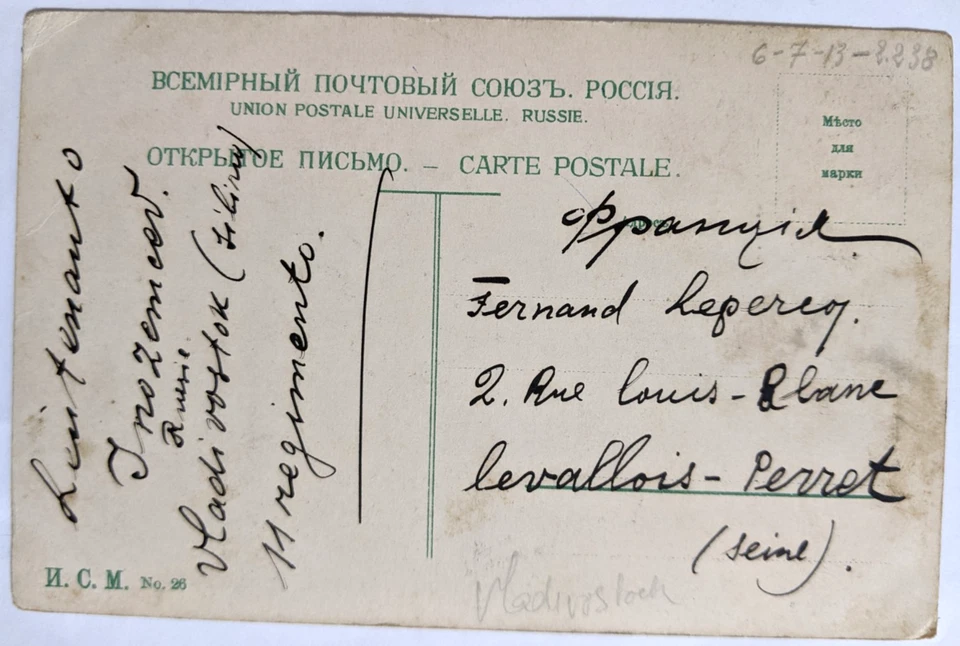 6-7-13-2.238
ВСЕМІРНЫЙ ПОЧТОВЫЙ СОЮЗЪ. РОССІЯ.
UNION POSTALE UNIVERSELLE. RUSSIE.
ОТКРЫТОЕ ПИСЬМО. — CARTE POSTALE.
Мѣсто
для
марки
Франція
Fernand Lepercq.
2. Rue Louis-Blanc
Levallois-Perret
(Seine).
Leŭtenanto
Russie.
Vladivostok (Siberia)
11 regimento.
И. С. М. No. 26
Vladivostock